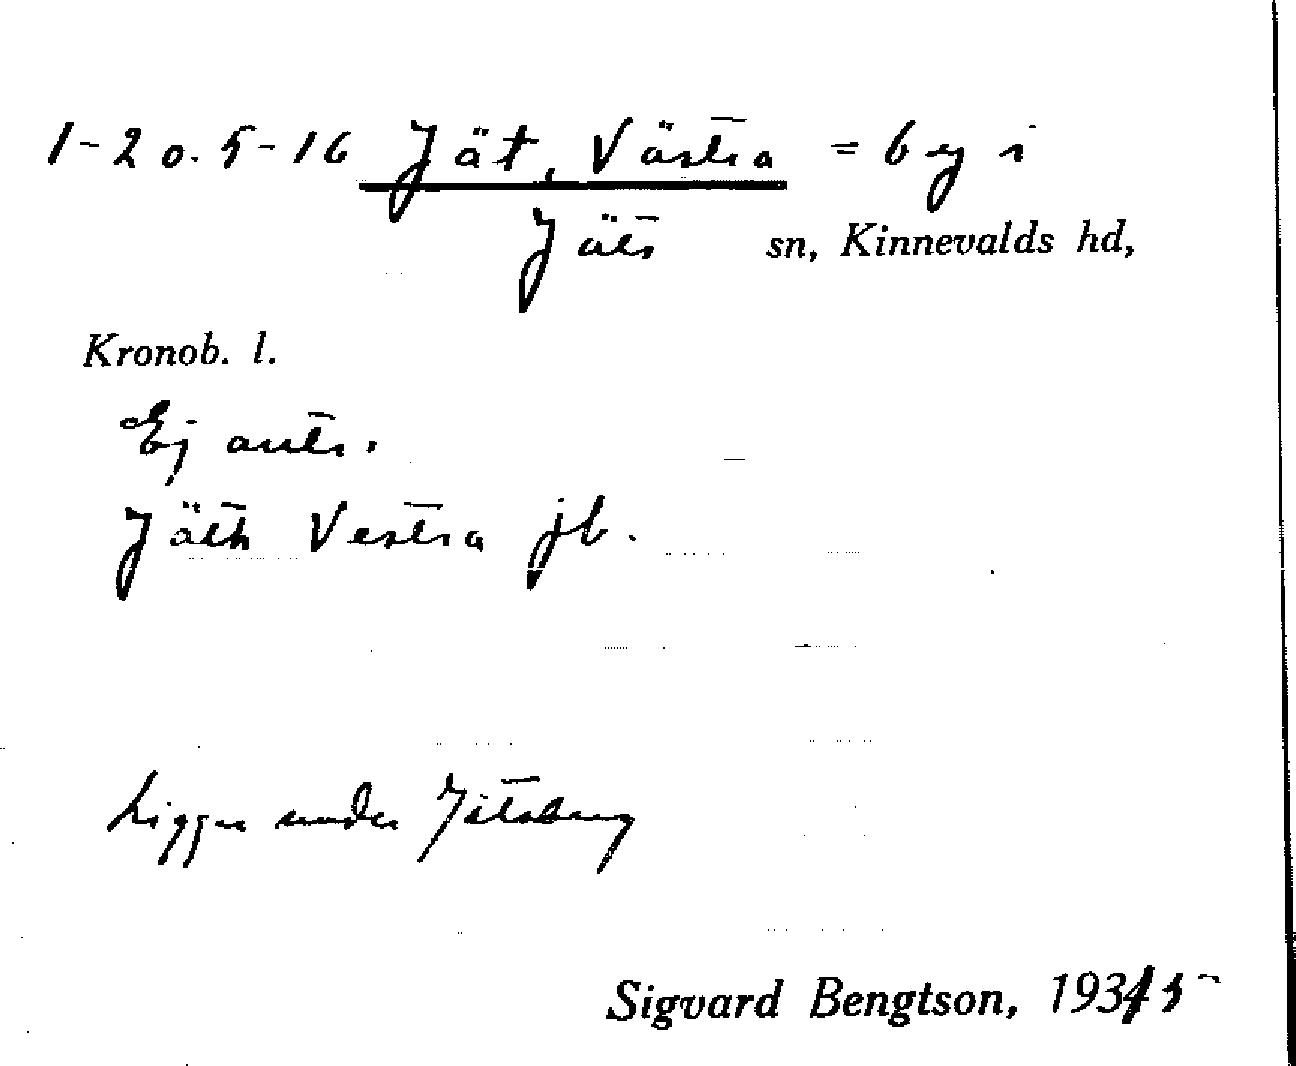 1-2 o. 5-16 Jät, Västra = by i
Jäts sn, Kinnevalds hd,
Kronob. l.
Ej ants.
Jäth Vestra jb.
Ligger under Jätsberg
Sigvard Bengtson, 1935